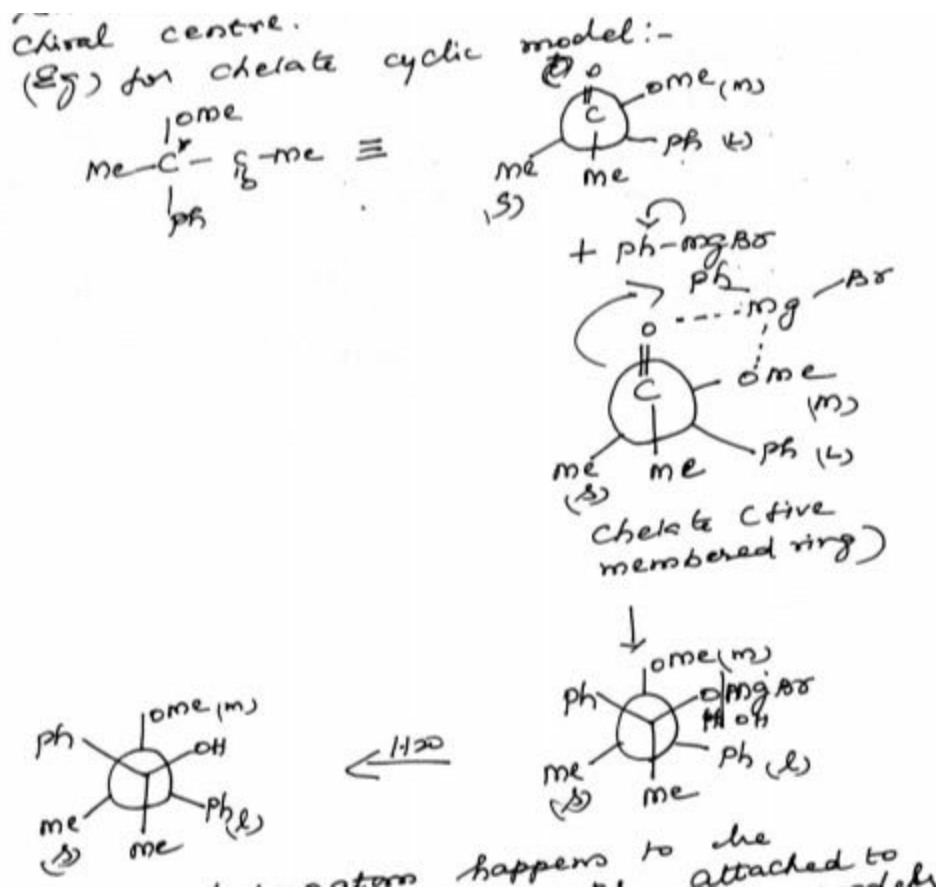 Chiral centre.
(Eg) for chelate cyclic model:-
OMe
Me-C*-C-Me ≡
O
Ph
O
C
OMe (m)
Ph (L)
Me
(S)
Me
+ Ph-MgBr
Ph
Mg
Br
O
C
OMe
(m)
Ph (L)
Me
(S)
Me
Chelate (five
membered ring)
OMe (m)
Ph
O|MgBr
OH
Ph (l)
Me
(S)
Me
H2O
OMe (m)
Ph
OH
Ph (l)
Me
(S)
Me
happens to be
attached to